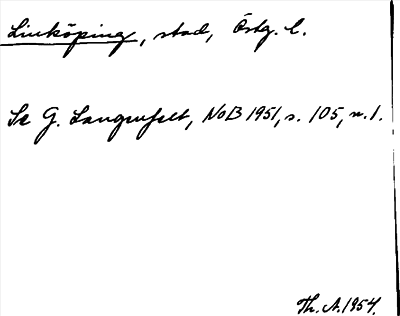 Linköping, stad, Östg. l.
Se G. Langenfelt, NoB 1951, s. 105, n. 1.
Th. A. 1954.